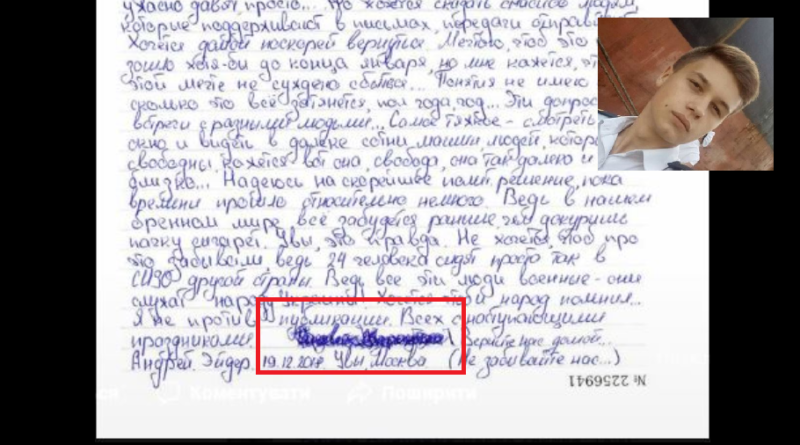 ужасно давят просто... Но хочется сказать спасибо людям,
которые поддерживают в письмах, передачи отправ
Хочется домой поскорей вернуться. Мечтаю, чтоб это
хотя-бы до конца января, но мне кажется, эт
этой мечте не суждено сбыться... Понятия не имею
сколько это всё затянется, пол года, год... Эти допрос
встречи с разными людьми... Самое тяжкое - смотреть
окно и видеть в далеке сотни машин, людей, котор
свободны. Кажется вот она, свобода, она так далеко и
близко... Надеюсь на скорейшее решение, пока
времени прошло относительно немного. Ведь в нашем
бренном мире всё забудется раньше, чем докуришь
пачку сигарет. Увы, это правда. Не хочется, чтоб про
это забывали, ведь 24 человека сидят просто так в
СИЗО другой страны. Ведь все эти люди военные - они
служат народу Украины. Хочется чтоб й народ помнил..
Я не против публикации. Всех с наступающими
праздниками Верните нас домой...
Андрей Эйдер. 19.12.201 Увы, Москва (Не забывайте нас...)
№ 2256941
ся Коментувати Поширити